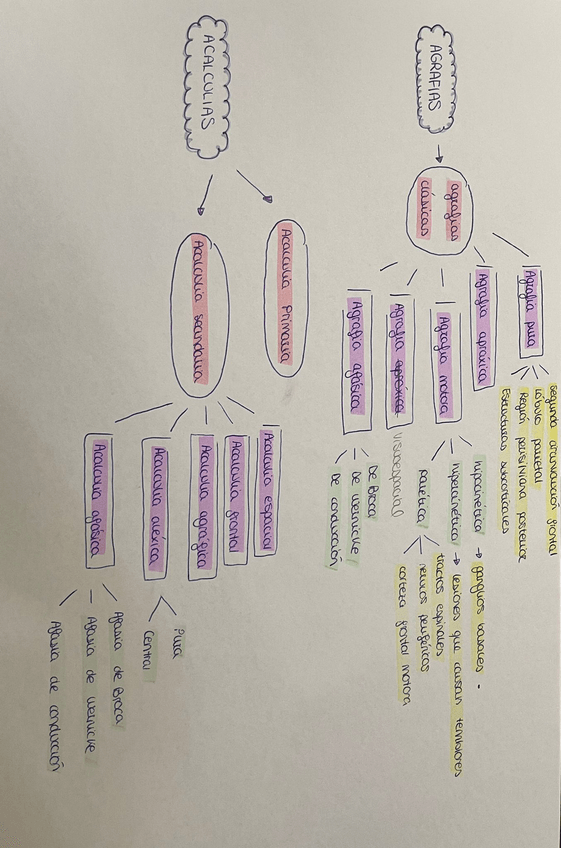 AGRAFIAS
agrafias
clásicas
Agrafia pura
Segunda circunvolución frontal
Lóbulo parietal
Región perisilviana posterior
Estructuras subcorticales
Agrafia apráxica
Agrafia motora
hipocinética → ganglios basales.
hipercinética → lesiones que causan temblores
parética
tractos espinales
nervios periféricos
corteza frontal motora
Agrafia apráxica visuoespacial
Agrafia afásica
De Broca
De wernicke
De conducción
ACALCULIAS
Acalculia Primaria
Acalculia secundaria
Acalculia espacial
Acalculia frontal
Acalculia agráfica
Acalculia aléxica
Pura
Central
Acalculia afásica
Afasia de Broca
Afasia de wernicke
Afasia de conducción